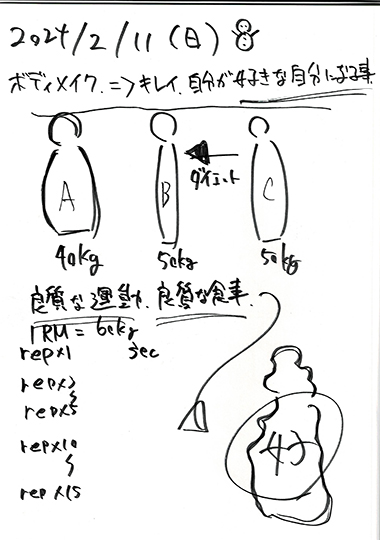 2024/2/11(日)
ボディメイク. => キレイ. 自分が好きな自分になる事
A B C
ダイエット
40kg 50kg 50kg
良質な運動. 良質な食事.
1RM = 60kg
repx1 3sec
repx2
repx5
repx10
rep x15